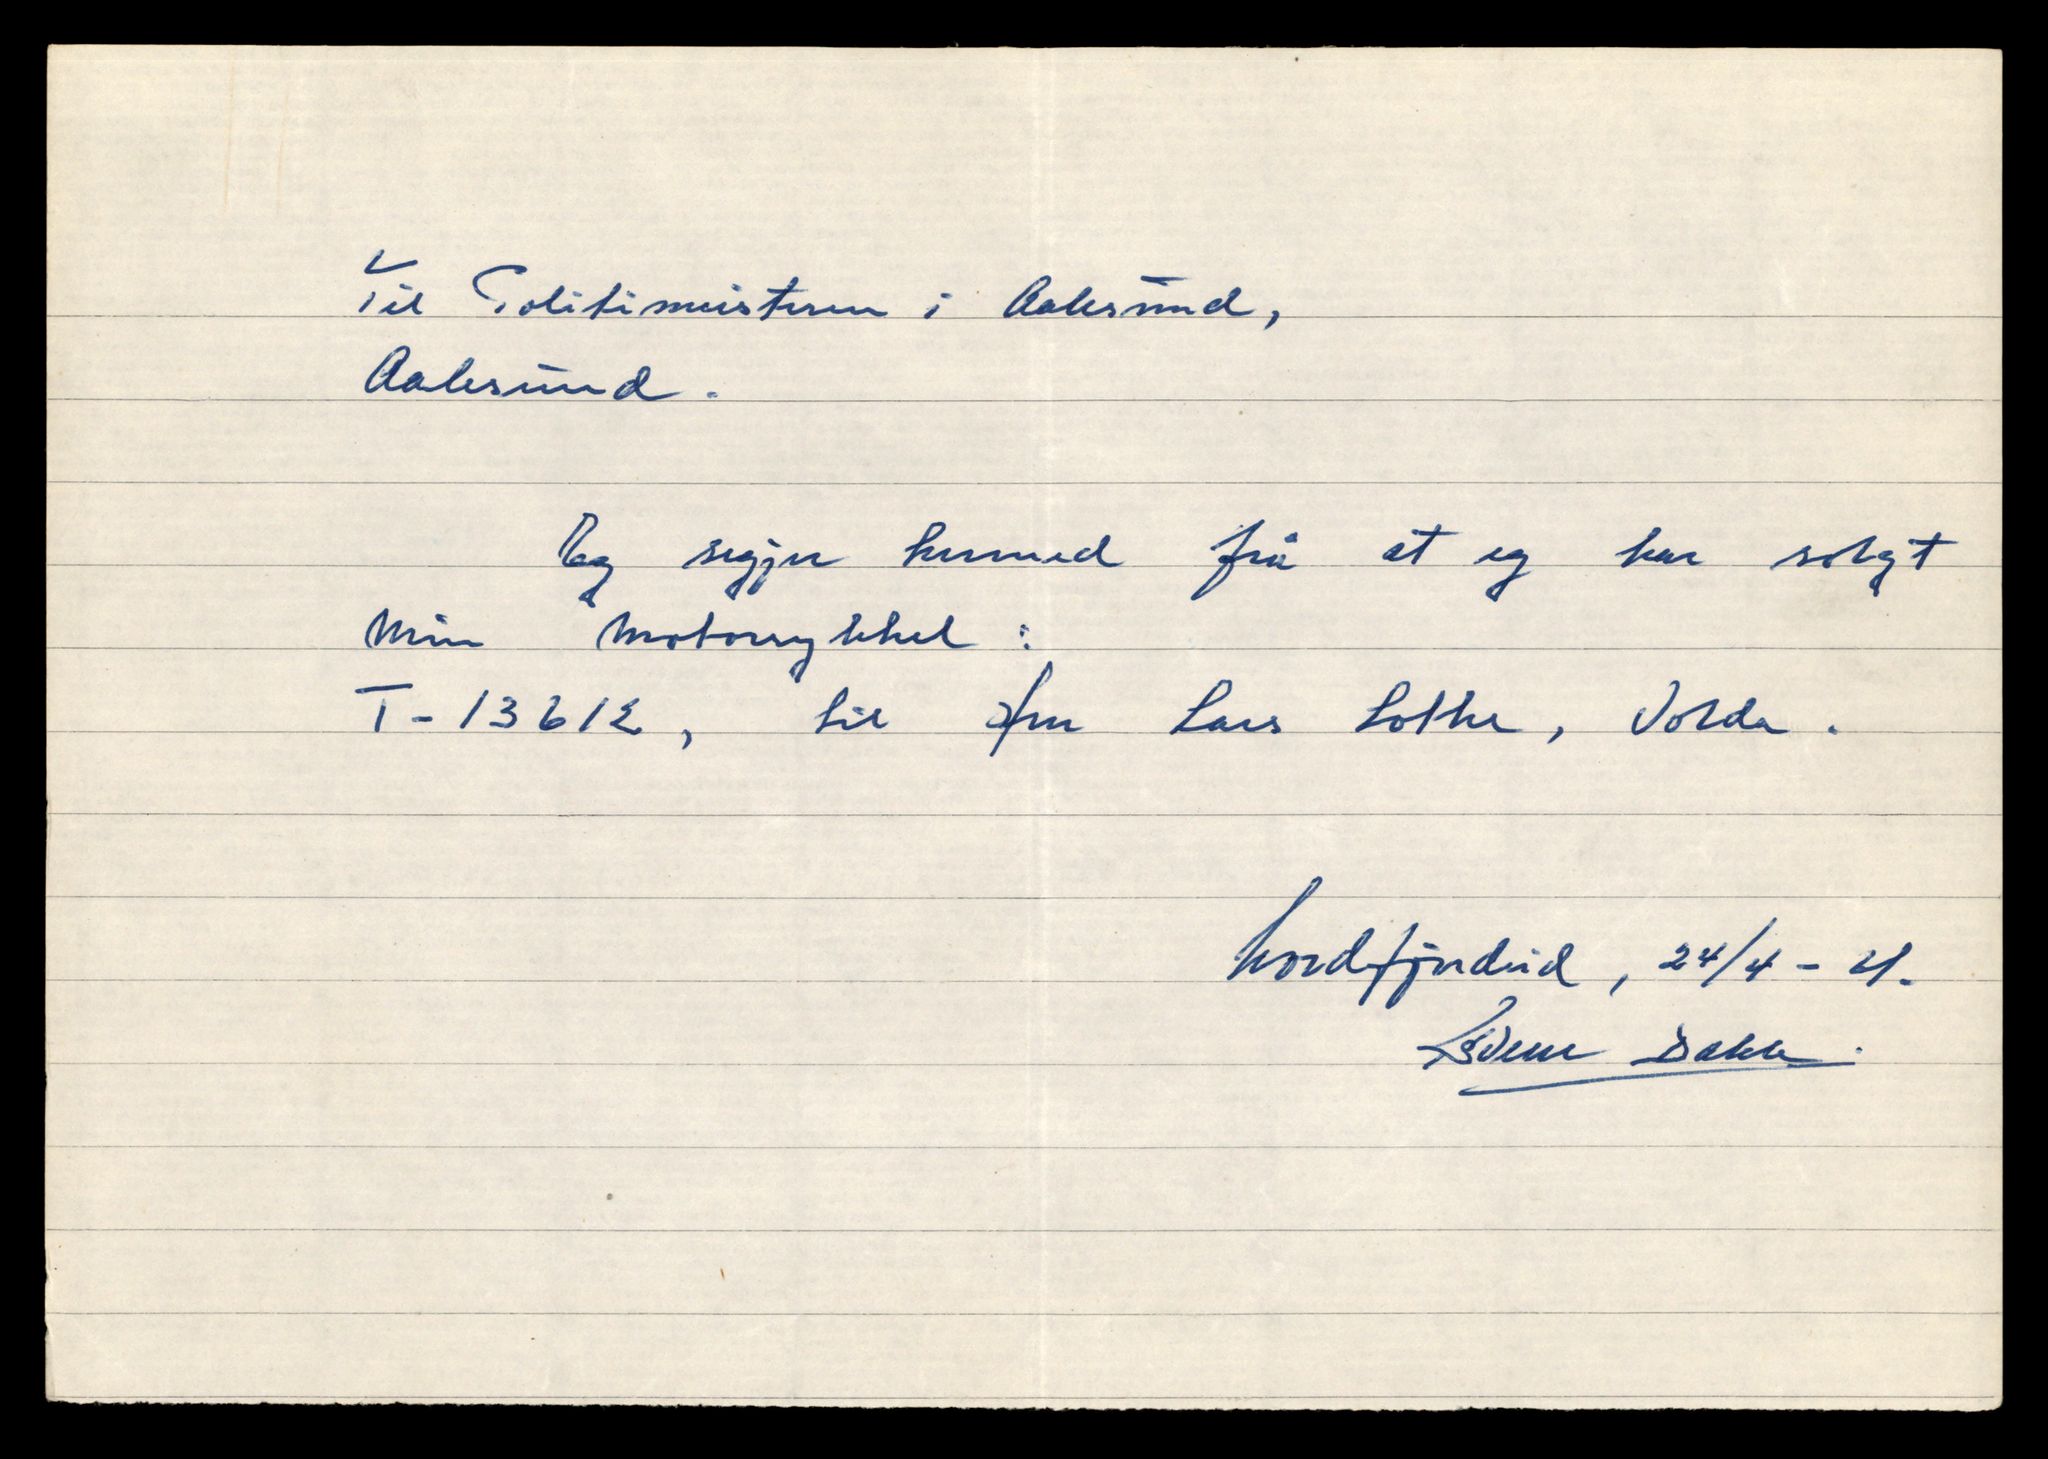 Til Politimeisteren i Aalesund,
Aalesund.
Eg segjer hermed frå at eg har solgt
min motorsykkel:
T-13612, til Hr. Lars Lothe, Volda.
Nordfjordeid, 24/4 -